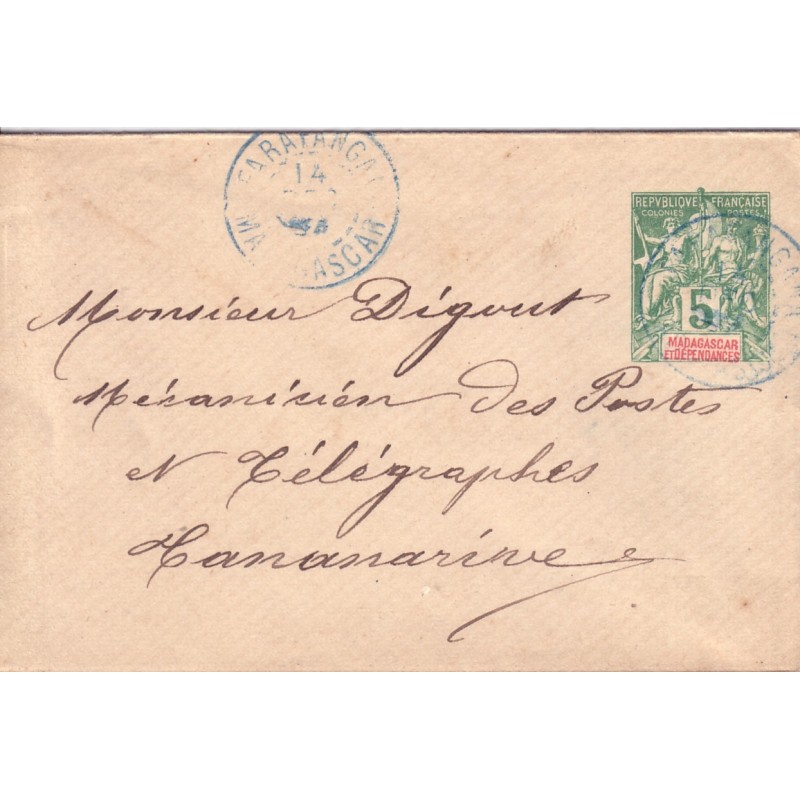 FARAFANGANA
14
MADAGASCAR
REPVBLIQVE FRANÇAISE
COLONIES POSTES
5
MADAGASCAR
ET DÉPENDANCES
Monsieur Digout
Mécanicien des Postes
et Télégraphes
Tananarive